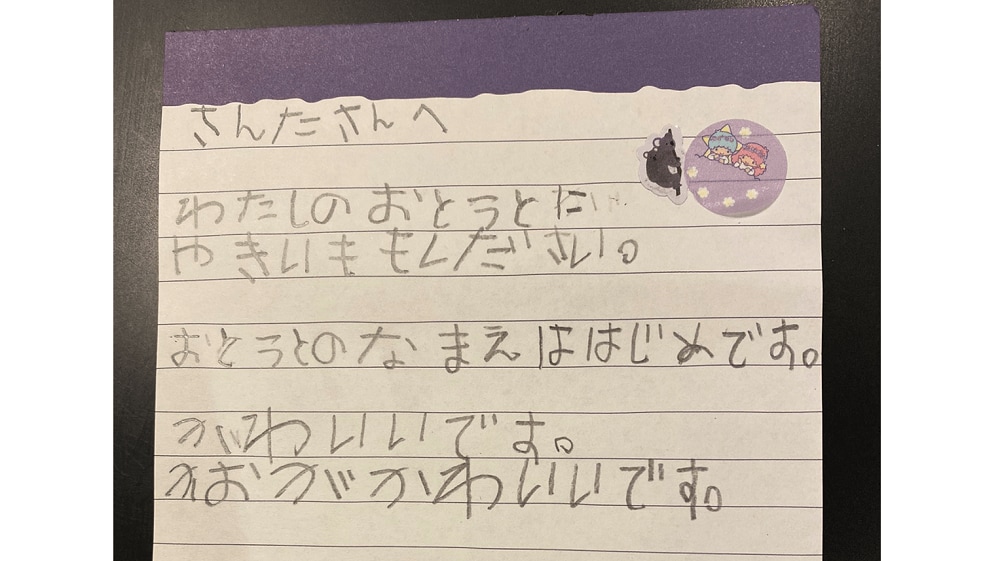 さんたさんへ
わたしのおとうとだ
やきいももください。
おとうとのなまえははじめです。
かわいいです。
かおがかわいいです。